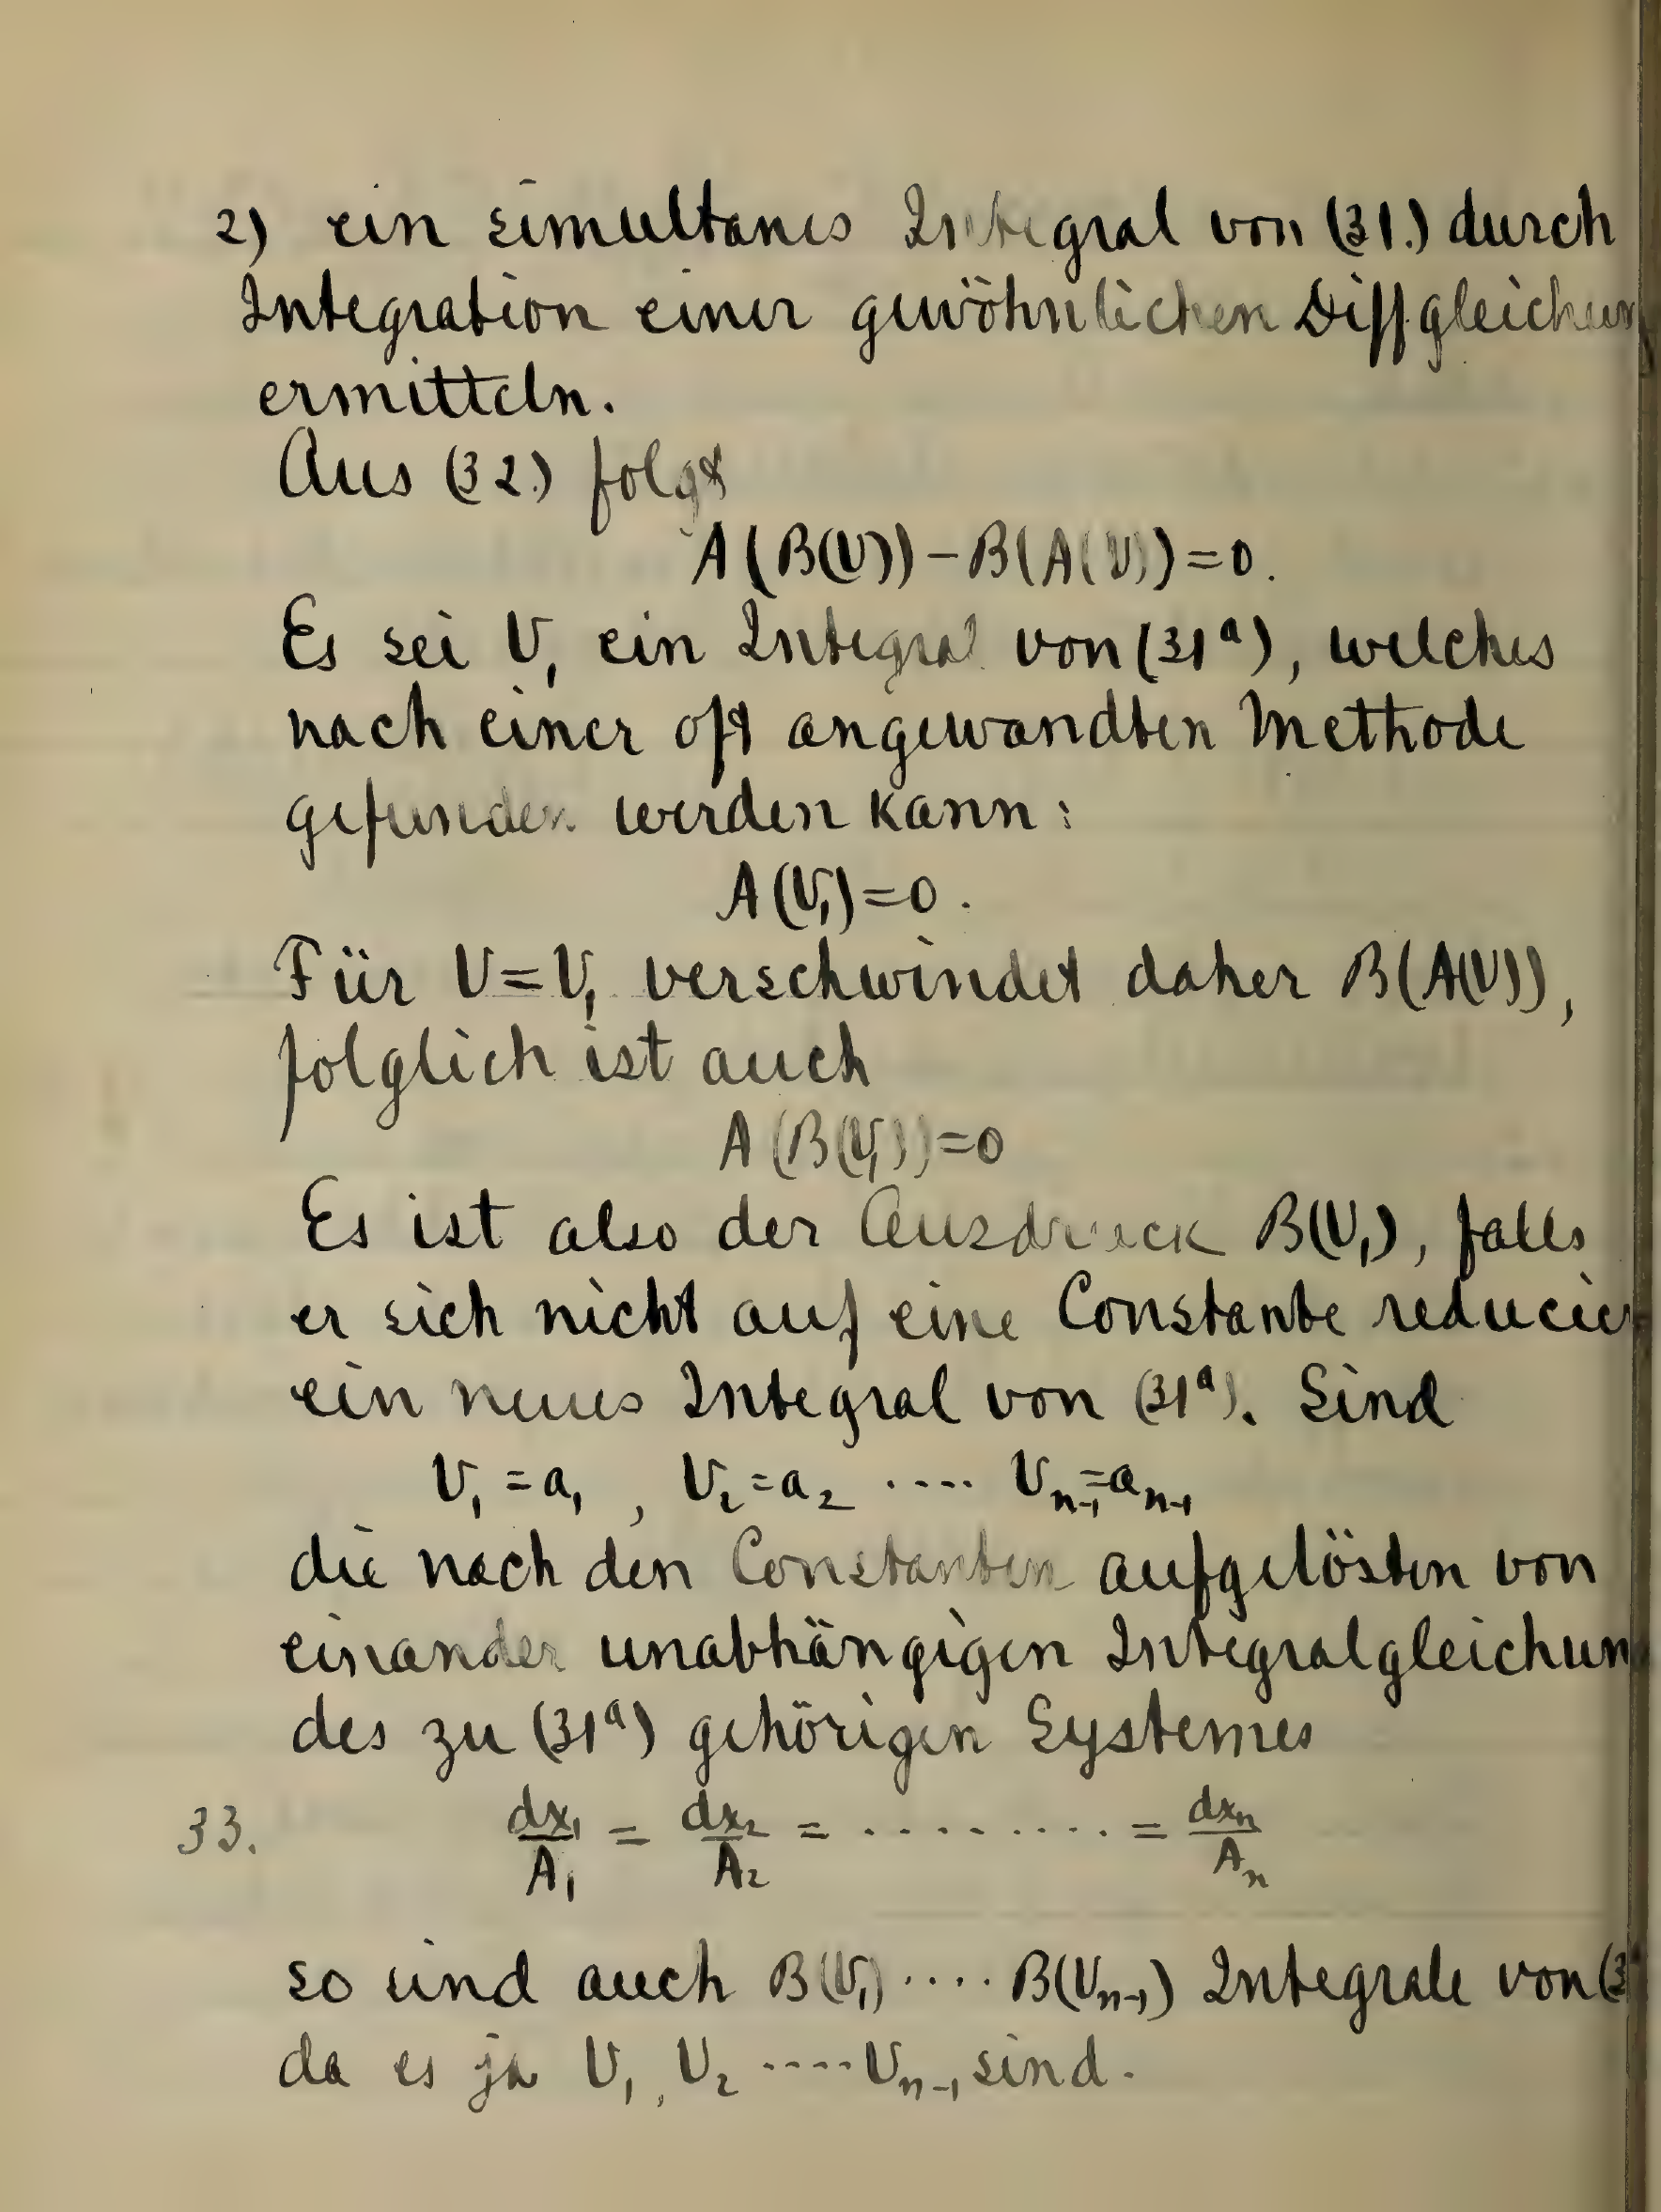 2) ein simultanes Integral von (31.) durch
Integration einer gewöhnlichen Diffgleichun
ermitteln.
Aus (32.) folgt
A(B(V)) – B(A(V)) = 0.
Es sei V₁ ein Integral von (31ᵃ), welches
nach einer oft angewandten Methode
gefunden werden kann:
A(V₁) = 0.
Für V = V₁ verschwindet daher B(A(V)),
folglich ist auch
A(B(V₁)) = 0
Es ist also der Ausdruck B(V₁), falls
er sich nicht auf eine Constante reducier
ein neues Integral von (31ᵃ). Sind
V₁ = a₁, V₂ = a₂ .... Vₙ₋₁ = aₙ₋₁
die nach den Constanten aufgelösten von
einander unabhängigen Integralgleichun
des zu (31ᵃ) gehörigen Systemes
33. dx₁/A₁ = dx₂/A₂ = ......... = dxₙ/Aₙ
so sind auch B(V₁) .... B(Vₙ₋₁) Integrale von (3
da es ja V₁, V₂ .... Vₙ₋₁ sind.